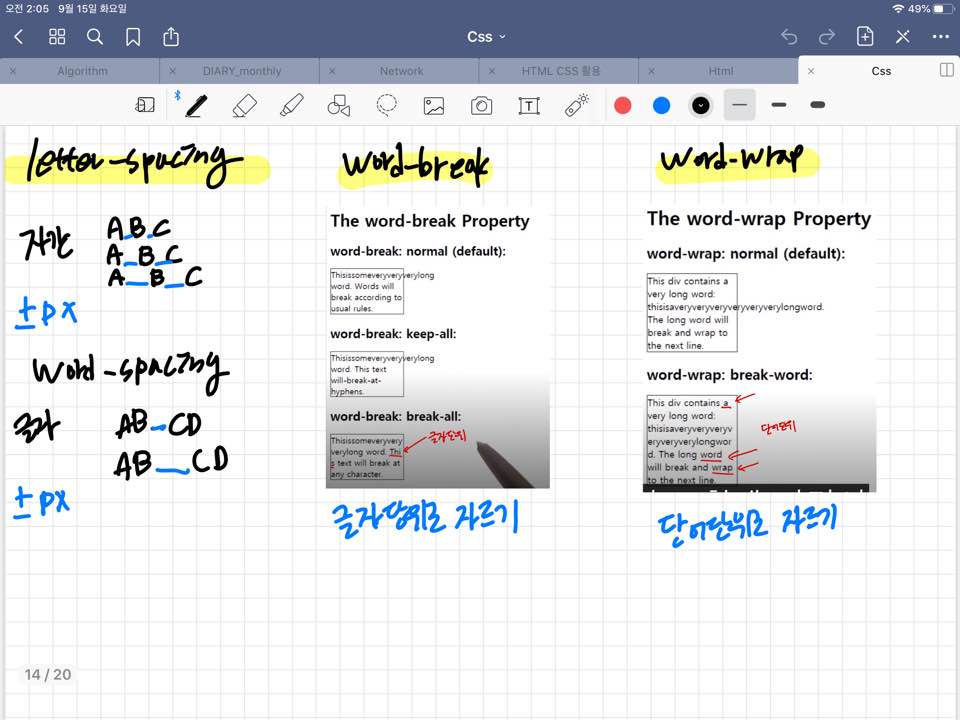 오전 2:05 9월 15일 화요일
49%
Css
Algorithm
DIARY_monthly
Network
HTML CSS 활용
Html
Css
letter-spacing
자간
A B C
A B C
A B C
± px
word-spacing
글자
AB CD
AB CD
± px
word-break
The word-break Property
word-break: normal (default):
Thisissomeveryveryverylong
word. Words will
break according to
usual rules.
word-break: keep-all:
Thisissomeveryveryverylong
word. This text
will-break-at-
hyphens.
word-break: break-all:
Thisissomeveryvery
verylong word. Thi
s text will break at
any character.
글자단위
글자단위로 자르기
word-wrap
The word-wrap Property
word-wrap: normal (default):
This div contains a
very long word:
thisisaveryveryveryveryveryverylongword.
The long word will
break and wrap to
the next line.
word-wrap: break-word:
This div contains a
very long word:
thisisaveryveryveryv
eryveryverylongwor
d. The long word
will break and wrap
to the next line.
단어단위
단어단위로 자르기
14 / 20